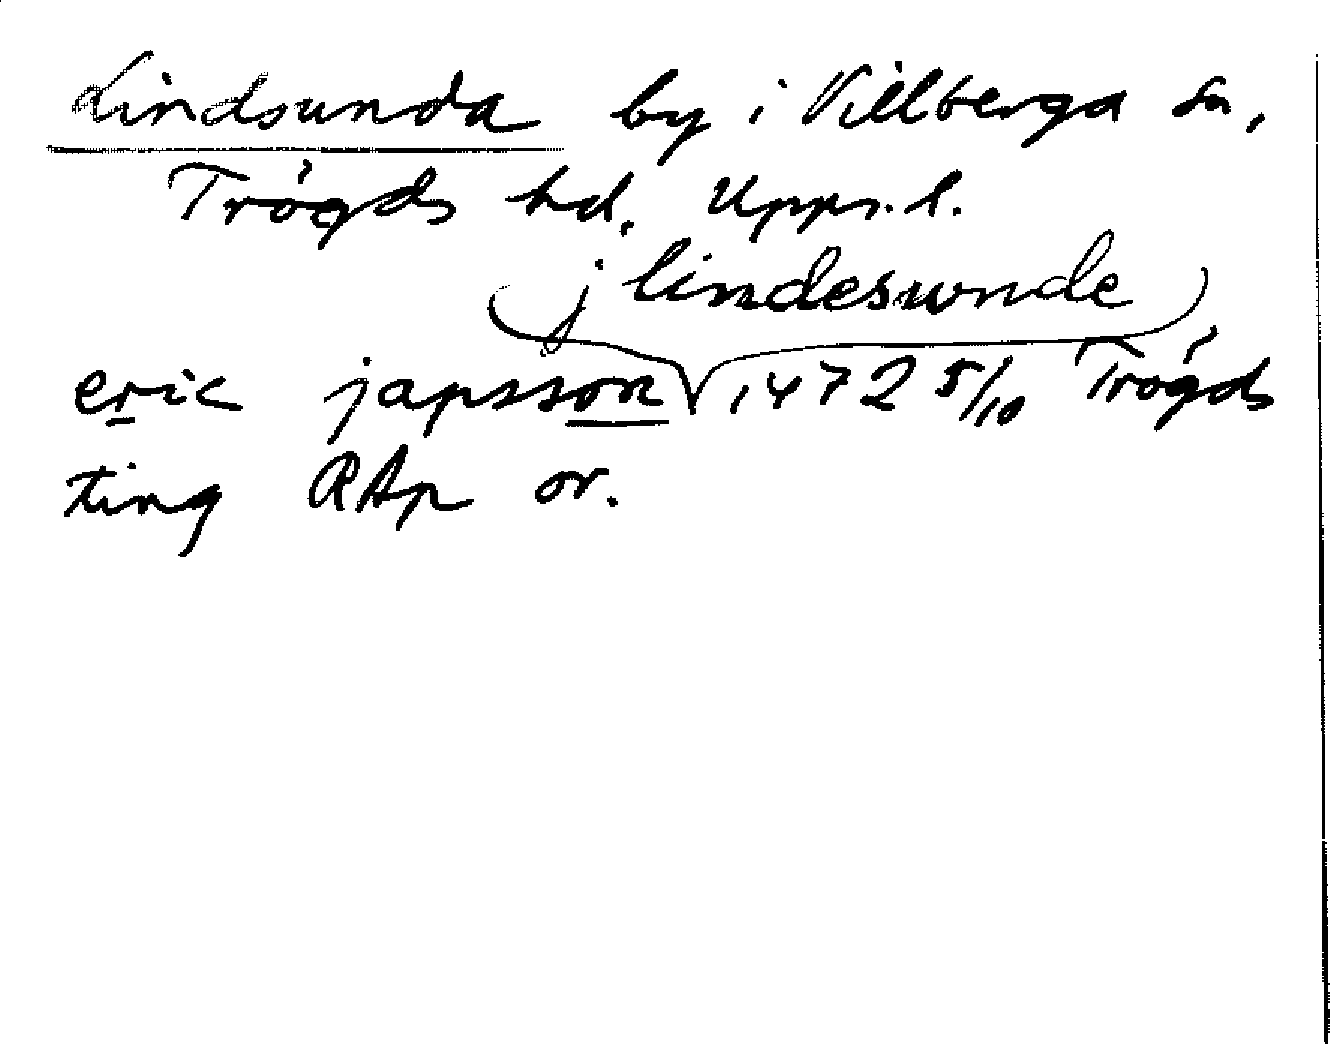 Lindsunda by i Villberga sn,
Trögds hd, Upps. l.
j lindesunde
eric japsson 1472 5/10 Trögds
ting RAp or.